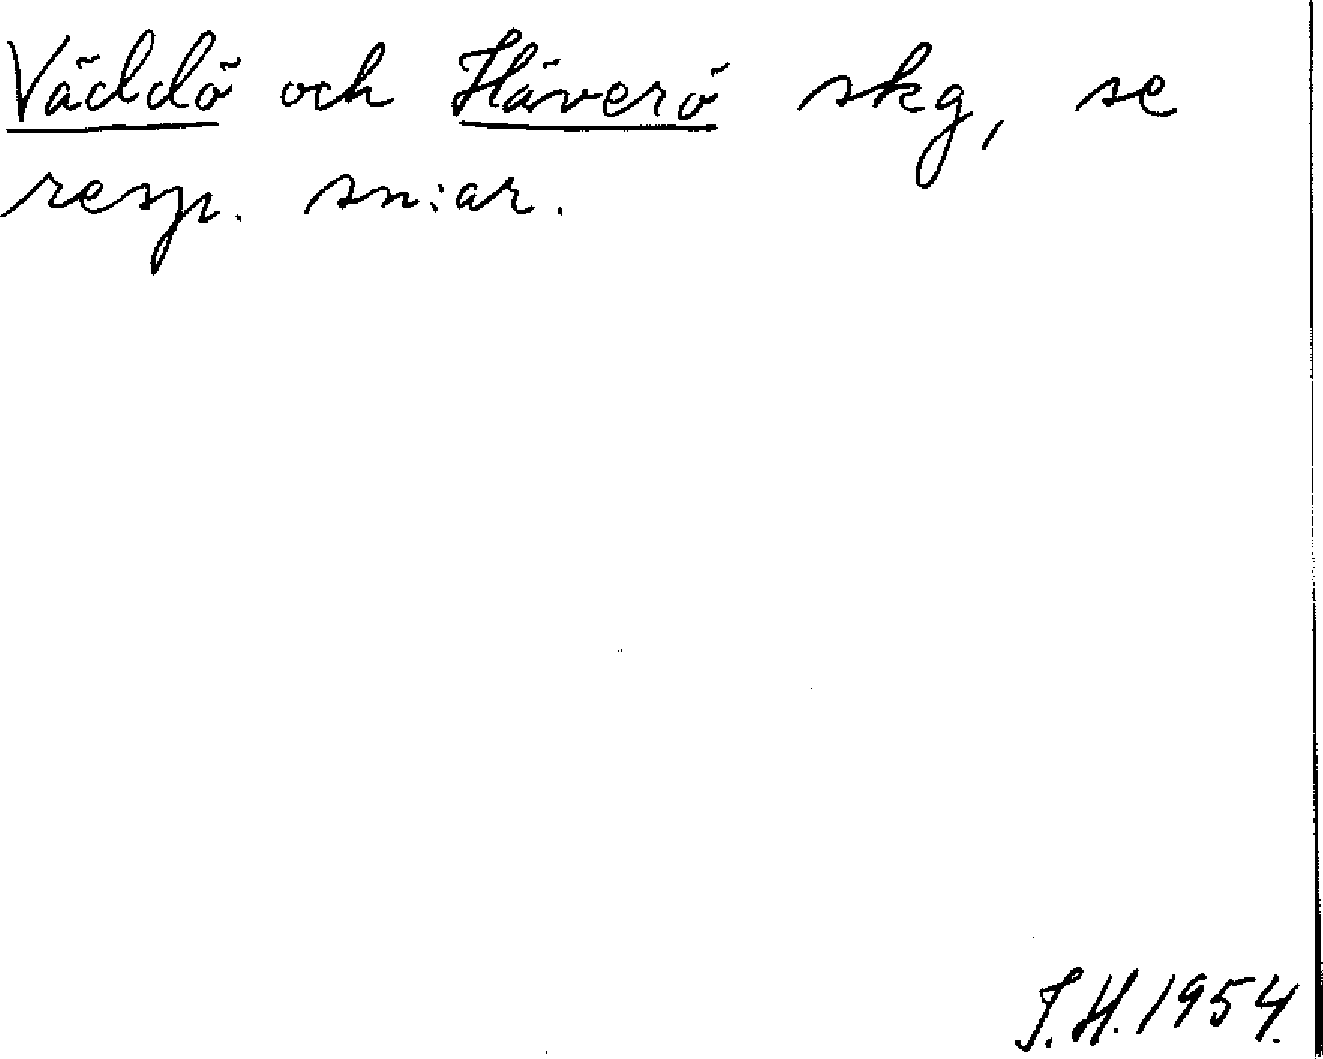 Väddö och Häverö skg, se
resp. sn:ar.
J.H. 1954.